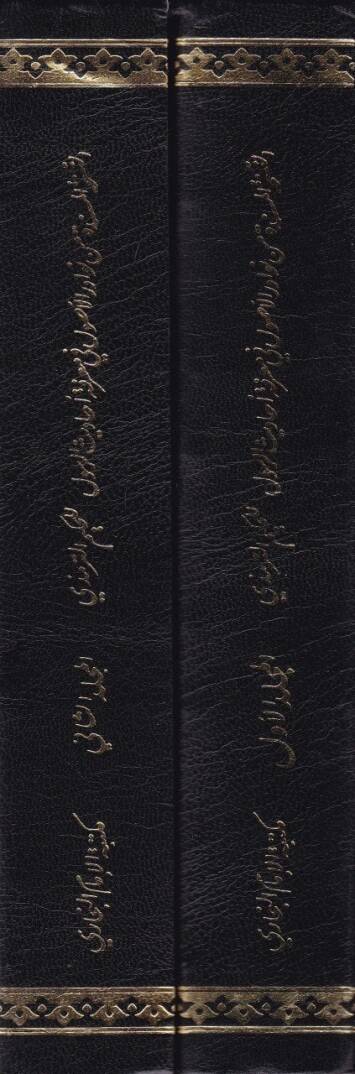 النسخة المسندة من نوادر الأصول في معرفة أحاديث الرسول للحكيم الترمذي
المجلد الأول
مكتبة الإمام البخاري
النسخة المسندة من نوادر الأصول في معرفة أحاديث الرسول للحكيم الترمذي
المجلد الثاني
مكتبة الإمام البخاري